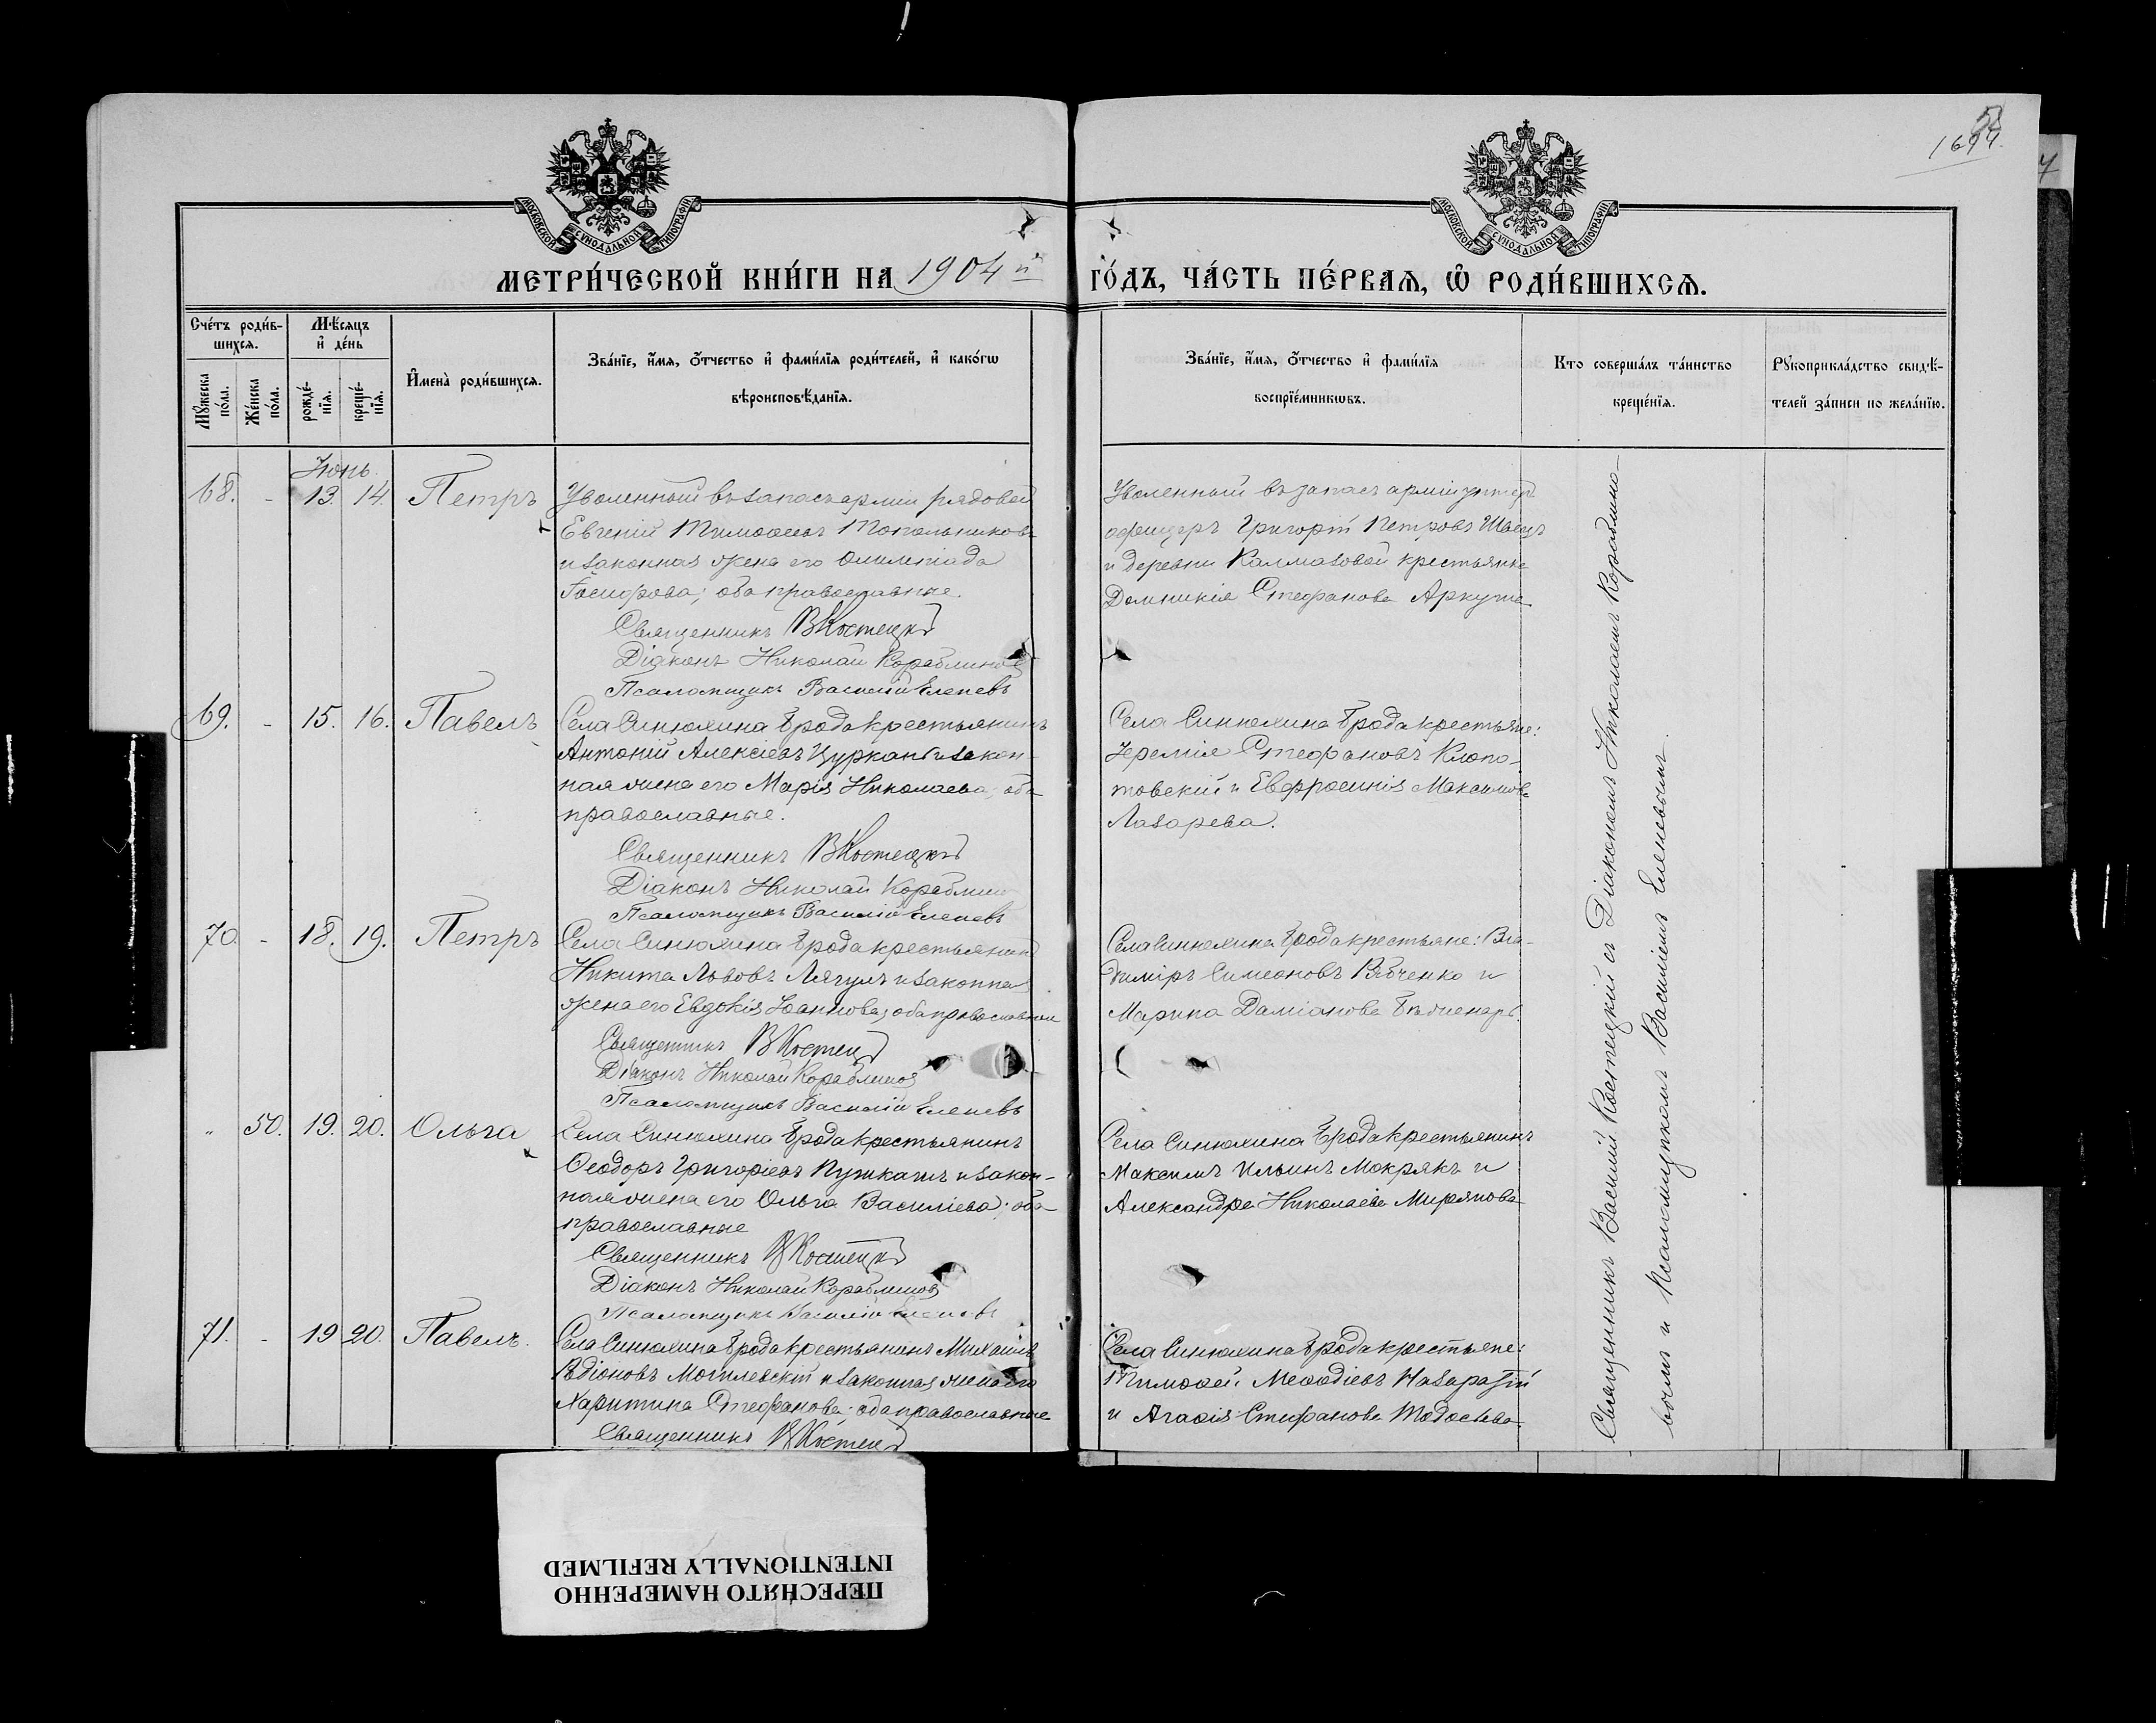 1694.
МОСКОВСКОЙ СѴНОДАЛЬНОЙ ТИПОГРАФІИ
МОСКОВСКОЙ СѴНОДАЛЬНОЙ ТИПОГРАФІИ
МЕТРИ́ЧЕСКОЙ КНИ́ГИ НА 1904й ГО́ДЪ, ЧА́СТЬ ПЕ́РВАѦ, Ѽ РОДИ́ВШИХСѦ.
Сче́тъ роди́в-
шихся.
Му́жеска по́ла.
Же́нска по́ла.
Мѣ́сяцъ
и҆ де́нь
рожде́-
нїя.
креще́-
нїя.
И҆мена̀ роди́вшихся.
Зва́нїе, и҆́мя, о҆́тчество и҆ фами́лїя роди́телей, и҆ како́гѡ
вѣроисповѣ́данїя.
Зва́нїе, и҆́мя, о҆́тчество и҆ фами́лїя
воспрїе́мникѡвъ.
Кто соверша́лъ та́инство
креще́нїя.
Рꙋкоприкла́дство свидѣ́-
телей за́писи по жела́нїю.
Іюнь
68. - 13. 14. Петръ
Уволенный въ запасъ арміи рядовой
Евгеній Тимоѳеевъ Топольниковъ
и законная жена его Олимпіада
оба православные.
Священникъ ВКостецкій
Діаконъ Николай Кораблиновъ
Псаломщикъ Василій Еленевъ
Уволенный въ запасъ арміи унтеръ
офицеръ Григорій Петровъ Швецъ
и деревни Калмазовой крестьянка
Домникія Стефанова Аркуша
69. - 15. 16. Павелъ
Села Синюхина Брода крестьянинъ
Антоній Алексіевъ Цурканъ и закон-
ная жена его Марія Николаева; оба
православные.
Священникъ ВКостецкій
Діаконъ Николай Кораблинов
Псаломщикъ Василій Еленевъ
Села Синюхина Брода крестьяне:
Іеремія Стефановъ Клопо-
товскій и Евфросинія Максимова
Лазарева.
70. - 18. 19. Петръ
Села Синюхина Брода крестьянинъ
Никита Львовъ Лягулъ и законная
жена его Евдокія Іоаннова; оба православные
Священникъ ВКостецкій
Діаконъ Николай Кораблиновъ
Псаломщикъ Василій Еленевъ
Села Синюхина Брода крестьяне: Вла-
диміръ Симеоновъ Рябченко и
Марина Даміанова
" 50. 19. 20. Ольга
Села Синюхина Брода крестьянинъ
Ѳеодоръ Григоріевъ Пушкашъ и закон-
ная жена его Ольга Василіева; оба
православные
Священникъ ВКостецкій
Діаконъ Николай Кораблиновъ
Псаломщикъ Василій Еленевъ
Села Синюхина Брода крестьянинъ
Максимъ Ильинъ Мокрякъ и
Александра Николаева Мирянова
71. - 19 20. Павелъ.
Села Синюхина Брода крестьянинъ Михаилъ
Родіоновъ Могилевскій и законная жена его
Харитина Стефанова; оба православные
Священникъ ВКостецкій
Села Синюхина Брода крестьяне:
Тимоѳей Меѳодіевъ
и Агаѳія Стефанова
Священникъ Василій Костецкій съ Діакономъ Николаемъ Кораблино-
вымъ и Псаломщикомъ Василіемъ Еленевымъ.
ПЕРЕСНЯТО НАМЕРЕННО
INTENTIONALLY REFILMED